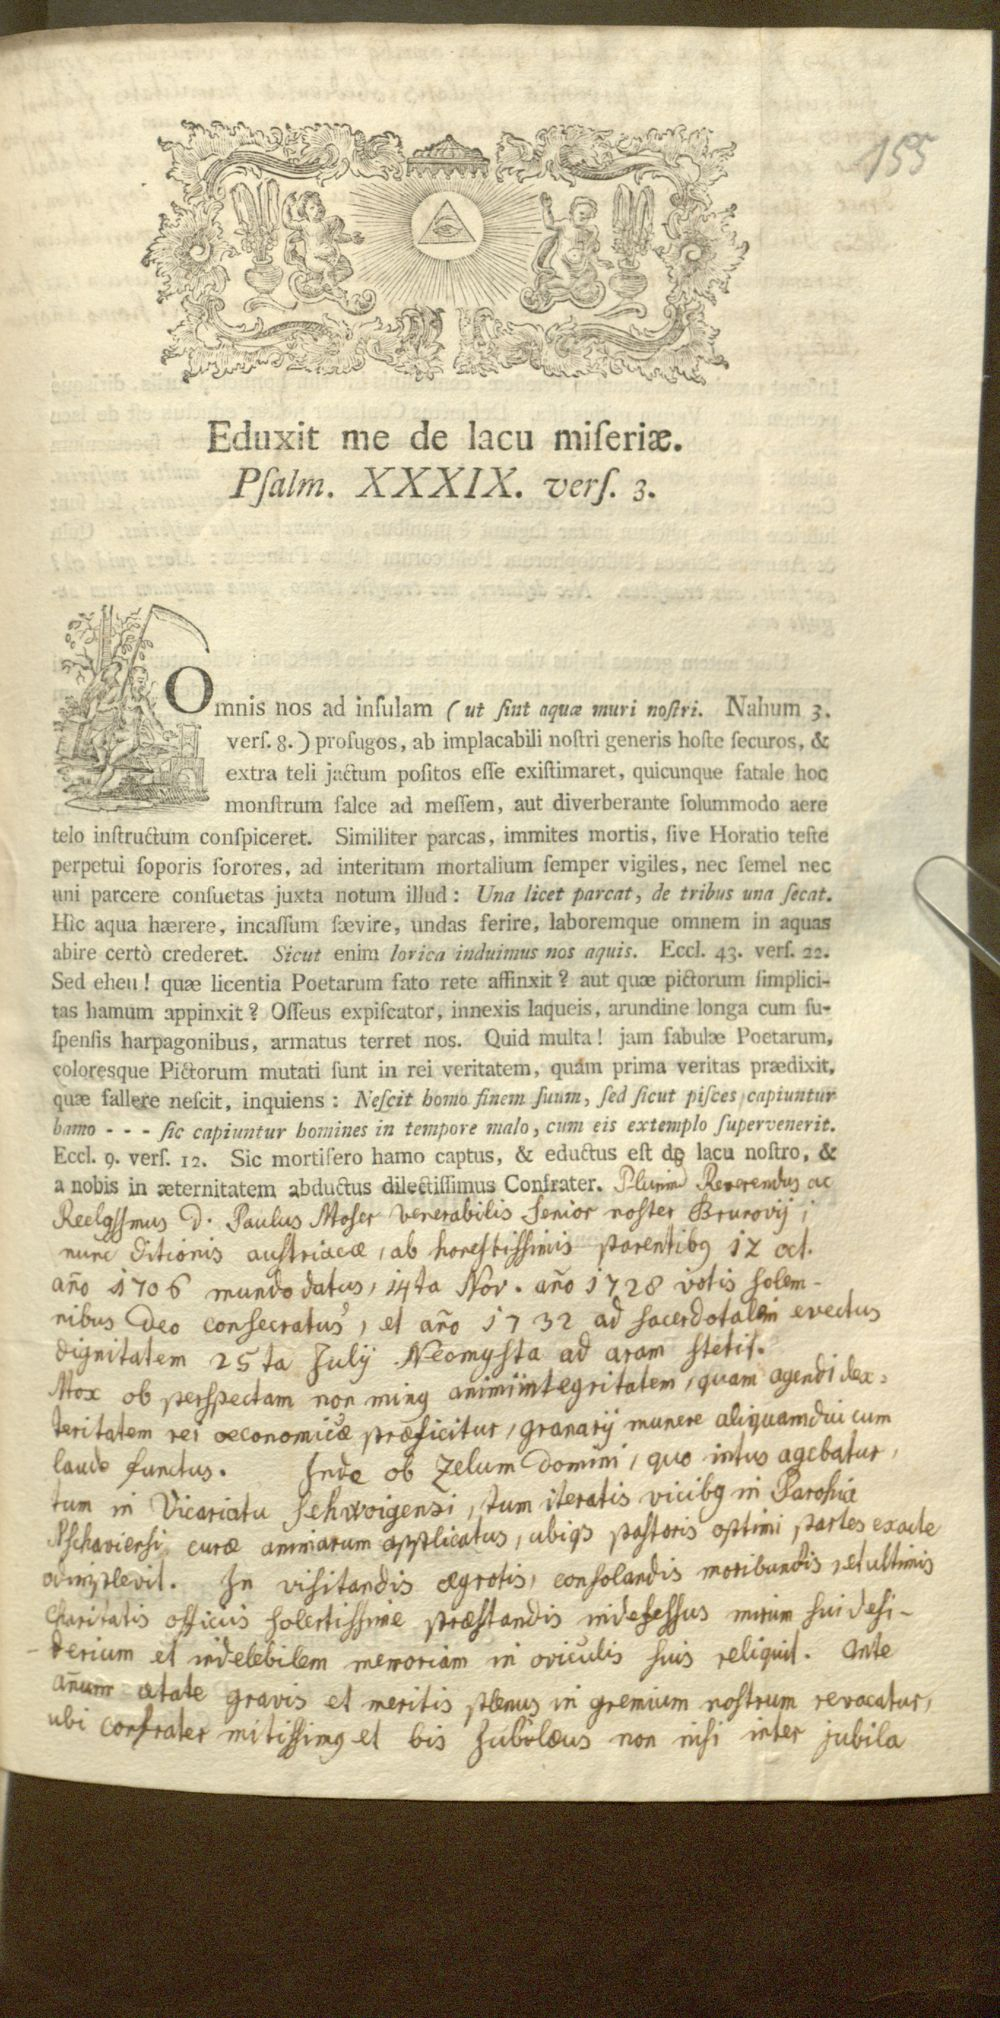 155
Eduxit me de lacu miſeriæ.
Pſalm. XXXIX. verſ. 3.
Omnis nos ad inſulam ( ut ſint aquæ muri noſtri. Nahum 3.
verſ. 8. ) profugos, ab implacabili noſtri generis hoſte ſecuros, &
extra teli jactum poſitos eſſe exiſtimaret, quicunque fatale hoc
monſtrum falce ad meſſem, aut diverberante ſolummodo aere
telo inſtructum conſpiceret. Similiter parcas, immites mortis, ſive Horatio teſte
perpetui ſoporis ſorores, ad interitum mortalium ſemper vigiles, nec ſemel nec
uni parcere conſuetas juxta notum illud : Una licet parcat, de tribus una ſecat.
Hic aqua hærere, incaſſum ſævire, undas ferire, laboremque omnem in aquas
abire certò crederet. Sicut enim lorica induimus nos aquis. Eccl. 43. verſ. 22.
Sed eheu ! quæ licentia Poetarum fato rete affinxit ? aut quæ pictorum ſimplici-
tas hamum appinxit ? Oſſeus expiſcator, innexis laqueis, arundine longa cum ſu-
ſpenſis harpagonibus, armatus terret nos. Quid multa ! jam fabulæ Poetarum,
coloresque Pictorum mutati ſunt in rei veritatem, quam prima veritas prædixit,
quæ fallere neſcit, inquiens : Neſcit homo finem ſuum, ſed ſicut piſces capiuntur
hamo - - - ſic capiuntur homines in tempore malo, cum eis extemplo ſupervenerit.
Eccl. 9. verſ. 12. Sic mortifero hamo captus, & eductus eſt de lacu noſtro, &
a nobis in æternitatem abductus dilectiſſimus Confrater. Plurimũ Reverendus ac
D. Paulus Moser venerabilis Senior noster Brunovij ;
nunc ditionis austriacæ, ab honestissimis parentibꝯ 12 oct.
año 1706 mundo datus, 14ta Nov. año 1728 votis solem-
nibus Deo consecratus, et año 1732 ad sacerdotalem evectus
dignitatem 25ta Julij Neomysta ad aram stetit.
Mox ob perspectam non minꝯ animi integritatem, quam agendi dex=
teritatem rei œconomicæ præficitur, granarij munere aliquamdiu cum
laude functus. Inde ob Zelum Domini, quo intus agebatur,
tum in Vicariatu Schwoigensi, tum iteratis vicibꝯ in Parochia
curæ animarum applicatus, ubiqꝫ pastoris optimi partes exacte
adimplevit. In visitandis ægrotis, consolandis moribundis, et ultimis
charitatis officiis solertissime præstandis indefessus mirum sui desi-
derium et indelebilem memoriam in oviculis suis reliquit. Ante
añum ætate gravis et meritis plenus in gremium nostrum revocatur,
ubi confrater mitissimꝯ et bis Jubilæus non nisi inter jubila